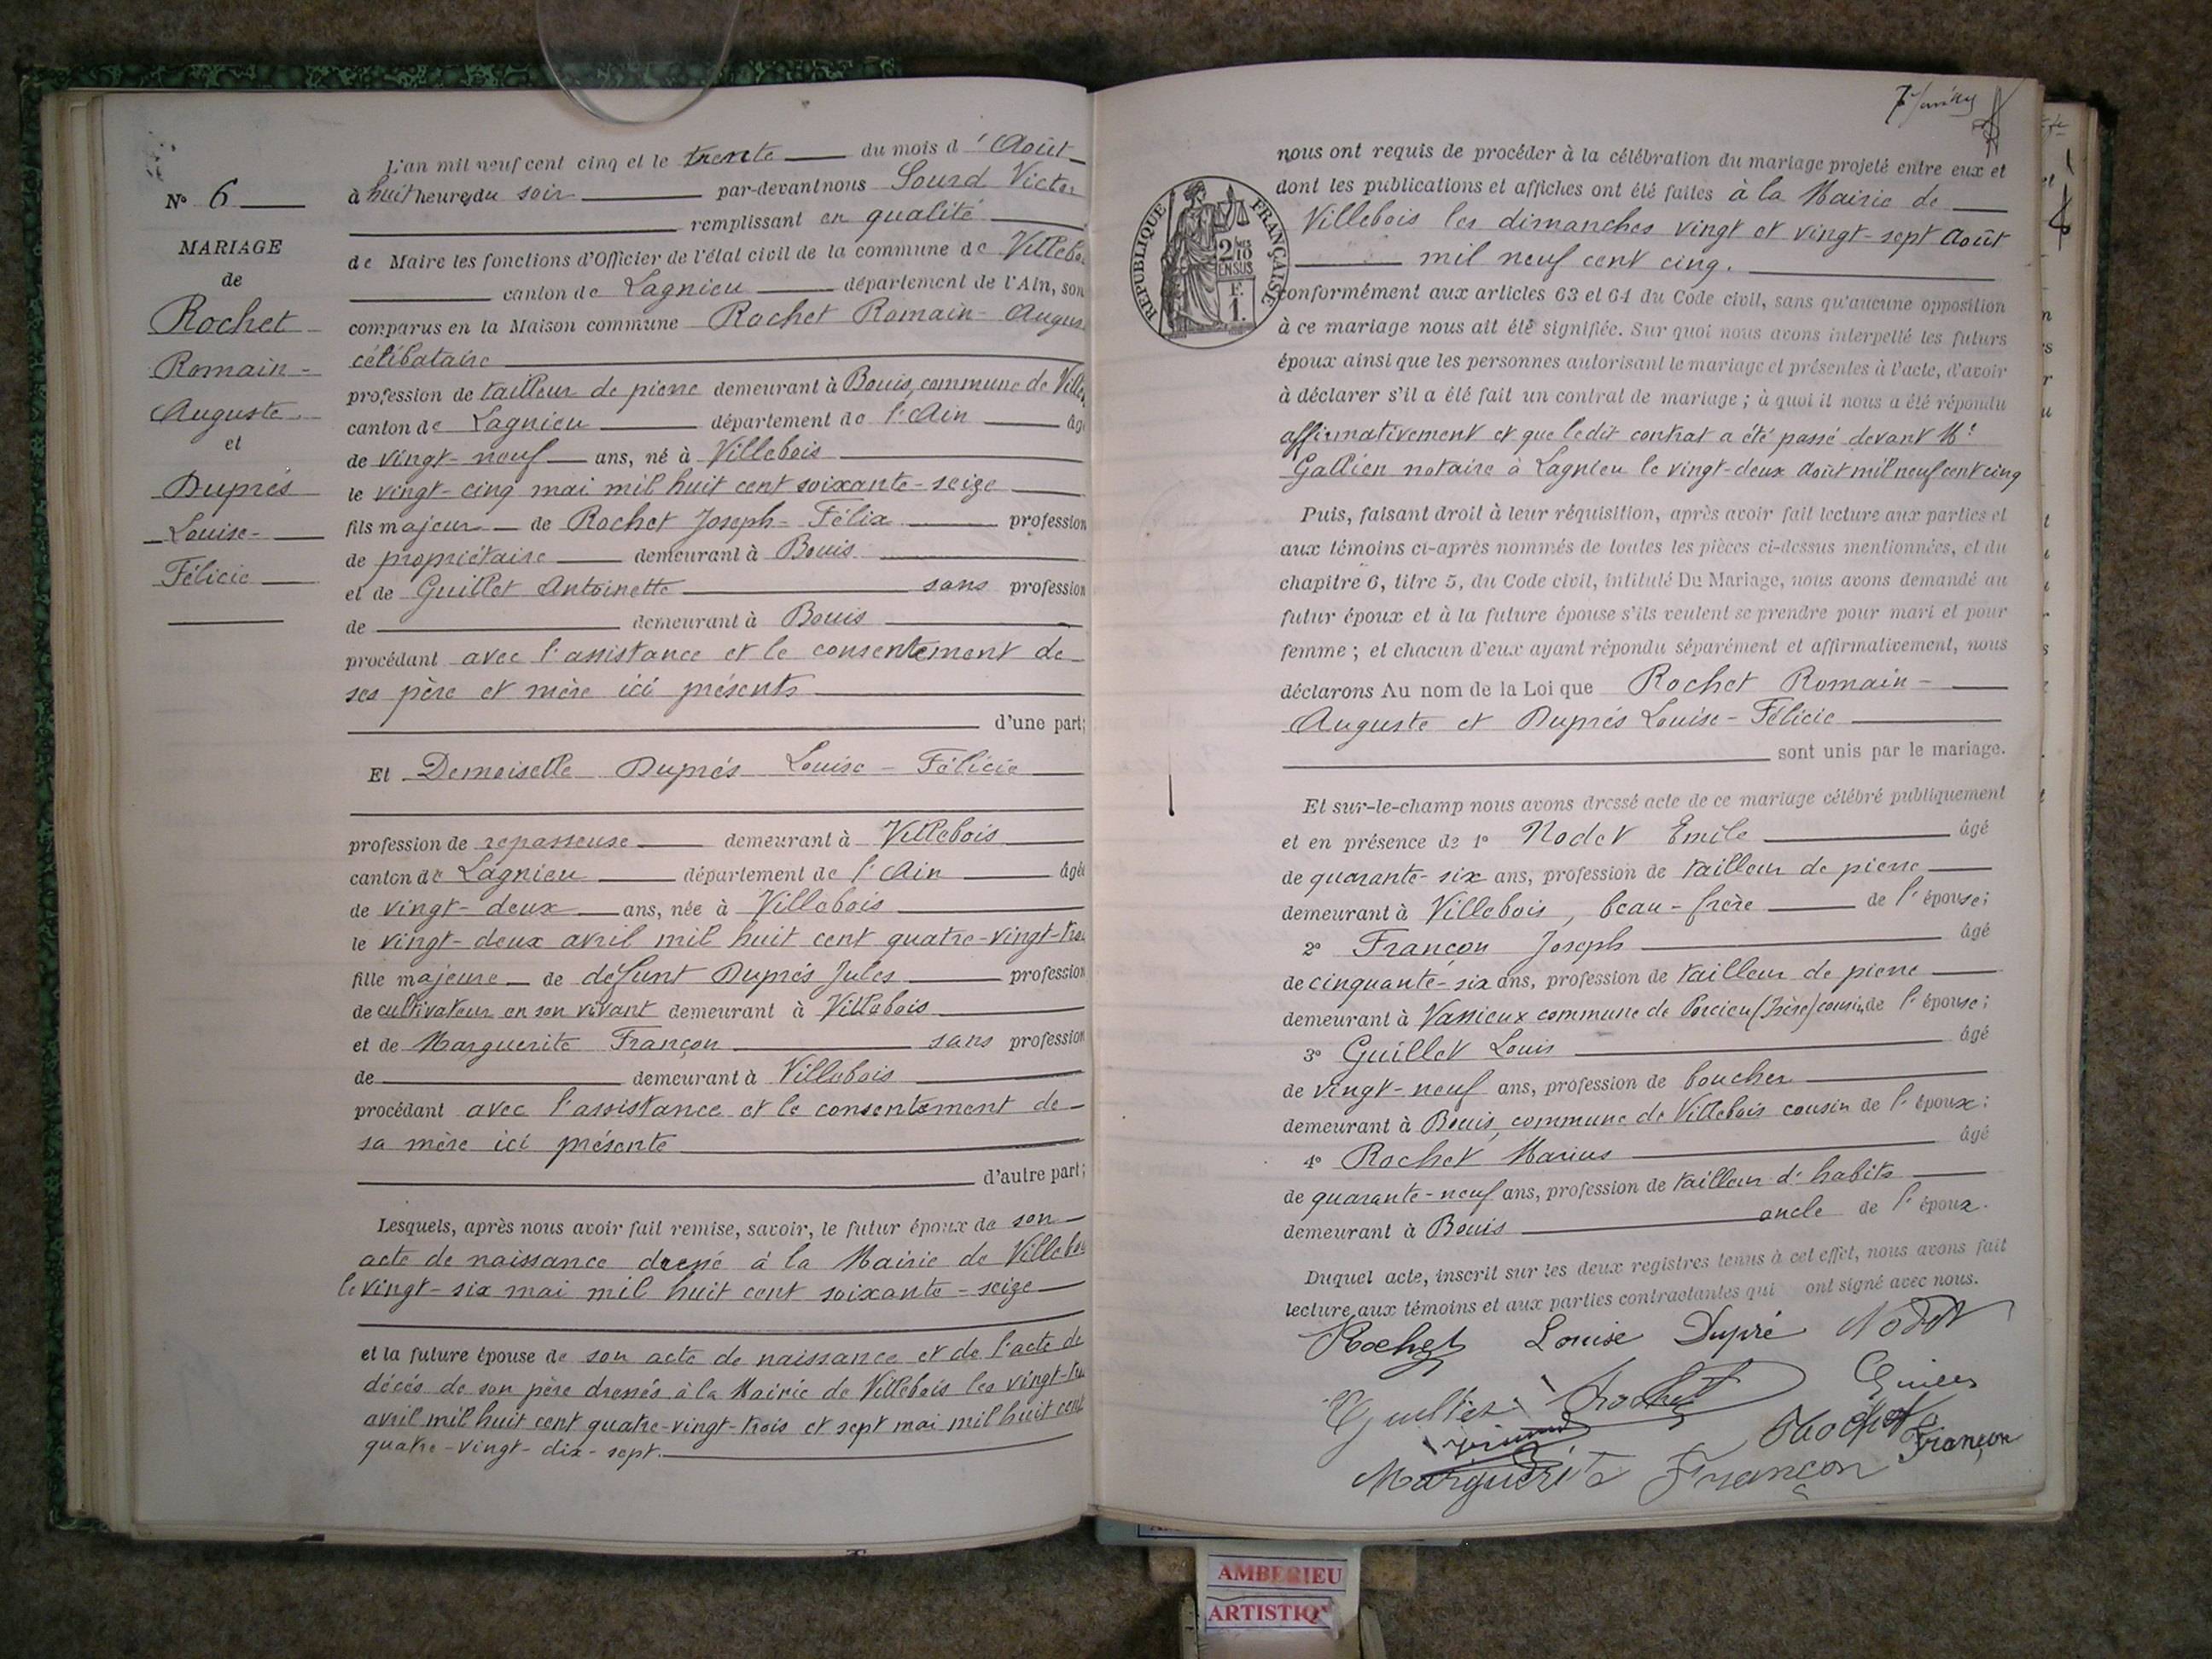 N° 6
MARIAGE
de
Rochet
Romain-
Auguste
et
Duprés
Louise-
Félicie
L'an mil neuf cent cinq et le trente du mois d'Août
à huit heures du soir par-devant nous Sourd Victor
remplissant en qualité
de Maire les fonctions d'Officier de l'état civil de la commune de Villebo
canton de Lagnieu département de l'Ain, son
comparus en la Maison commune Rochet Romain-Augus
célibataire
profession de tailleur de pierre demeurant à Bouis, commune de Ville
canton de Lagnieu département de l'Ain âg
de vingt-neuf ans, né à Villebois
le vingt-cinq mai mil huit cent soixante-seize
fils majeur de Rochet Joseph-Félix profession
de propriétaire demeurant à Bouis
et de Guillet Antoinette sans profession
de demeurant à Bouis
procédant avec l'assistance et le consentement de
ses père et mère ici présents
d'une part;
Et Demoiselle Duprés Louise-Félicie
profession de repasseuse demeurant à Villebois
canton de Lagnieu département de l'Ain âgé
de vingt-deux ans, née à Villebois
le vingt-deux avril mil huit cent quatre-vingt-troi
fille majeure de défunt Duprés Jules profession
de cultivateur en son vivant demeurant à Villebois
et de Marguerite Françon sans profession
de demeurant à Villebois
procédant avec l'assistance et le consentement de
sa mère ici présente
d'autre part;
Lesquels, après nous avoir fait remise, savoir, le futur époux de son
acte de naissance dressé à la Mairie de Villebo
le vingt-six mai mil huit cent soixante-seize
et la future épouse de son acte de naissance et de l'acte de
décès de son père dressés à la Mairie de Villebois les vingt-tr
avril mil huit cent quatre-vingt-trois et sept mai mil huit cent
quatre-vingt-dix-sept.
RÉPUBLIQUE FRANÇAISE
2/10
EN SUS
F.
1.
nous ont requis de procéder à la célébration du mariage projeté entre eux et
dont les publications et affiches ont été faites à la Mairie de
Villebois les dimanches vingt et vingt-sept Août
mil neuf cent cinq.
conformément aux articles 63 et 64 du Code civil, sans qu'aucune opposition
à ce mariage nous ait été signifiée. Sur quoi nous avons interpellé les futurs
époux ainsi que les personnes autorisant le mariage et présentes à l'acte, d'avoir
à déclarer s'il a été fait un contrat de mariage ; à quoi il nous a été répondu
affirmativement et que ledit contrat a été passé devant Mt
Gallien notaire à Lagnieu le vingt-deux Août mil neuf cent cinq
Puis, faisant droit à leur réquisition, après avoir fait lecture aux parties et
aux témoins ci-après nommés de toutes les pièces ci-dessus mentionnées, et du
chapitre 6, titre 5, du Code civil, intitulé Du Mariage, nous avons demandé au
futur époux et à la future épouse s'ils veulent se prendre pour mari et pour
femme ; et chacun d'eux ayant répondu séparément et affirmativement, nous
déclarons Au nom de la Loi que Rochet Romain-
Auguste et Duprés Louise-Félicie
sont unis par le mariage.
Et sur-le-champ nous avons dressé acte de ce mariage célébré publiquement
et en présence de 1° Nodet Emile âgé
de quarante-six ans, profession de tailleur de pierre
demeurant à Villebois, beau-frère de l'épouse;
2° Françon Joseph âgé
de cinquante-six ans, profession de tailleur de pierre
demeurant à Vassieux commune de Porcieu (Isère) cousin de l'épouse;
3° Guillet Louis âgé
de vingt-neuf ans, profession de boucher
demeurant à Bouis, commune de Villebois cousin de l'époux;
4° Rochet Marius âgé
de quarante-neuf ans, profession de tailleur d'habits
demeurant à Bouis oncle de l'époux.
Duquel acte, inscrit sur les deux registres tenus à cet effet, nous avons fait
lecture aux témoins et aux parties contractantes qui ont signé avec nous.
Rochet Louise Dupré Nodet
Guillet Rochet
Rochet Françon
Marguerite Françon
AMBERIEU
ARTISTIQ